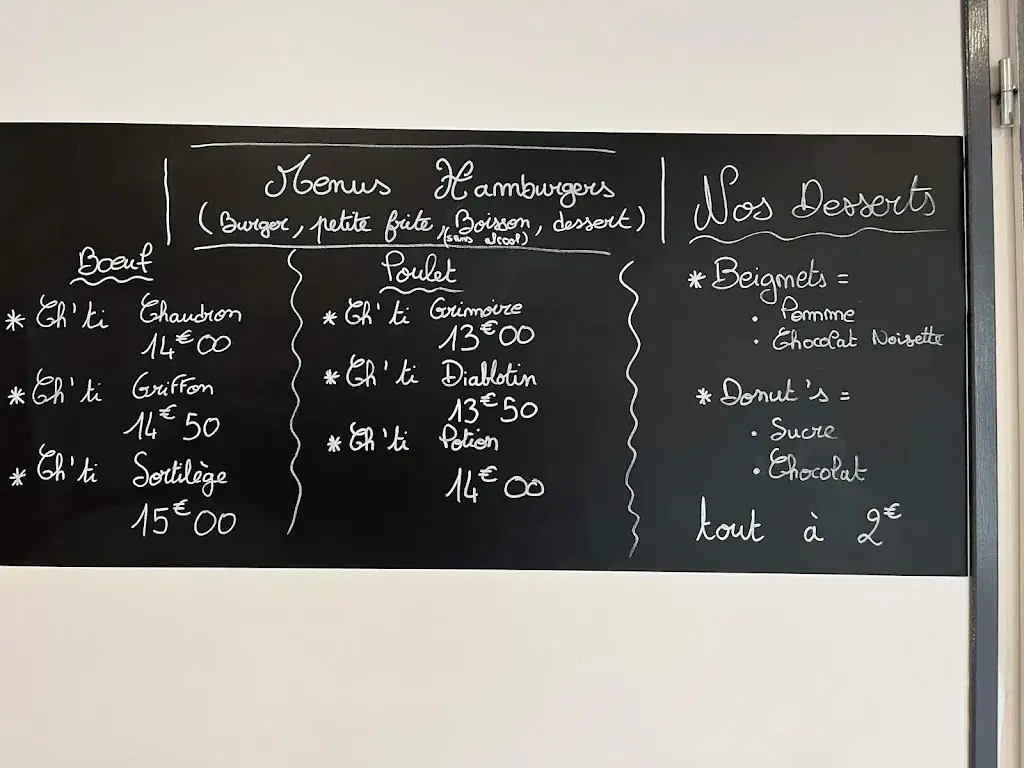 Menus Hamburgers
(Burger, petite frite, Boisson, dessert)
(sans alcool)
Bœuf
* Ch'ti Chaudron
14€00
* Ch'ti Griffon
14€50
* Ch'ti Sortilège
15€00
Poulet
* Ch'ti Grimoire
13€00
* Ch'ti Diablotin
13€50
* Ch'ti Potion
14€00
Nos Desserts
* Beignets =
• Pomme
• Chocolat Noisette
* Donut's =
• Sucre
• Chocolat
tout à 2€